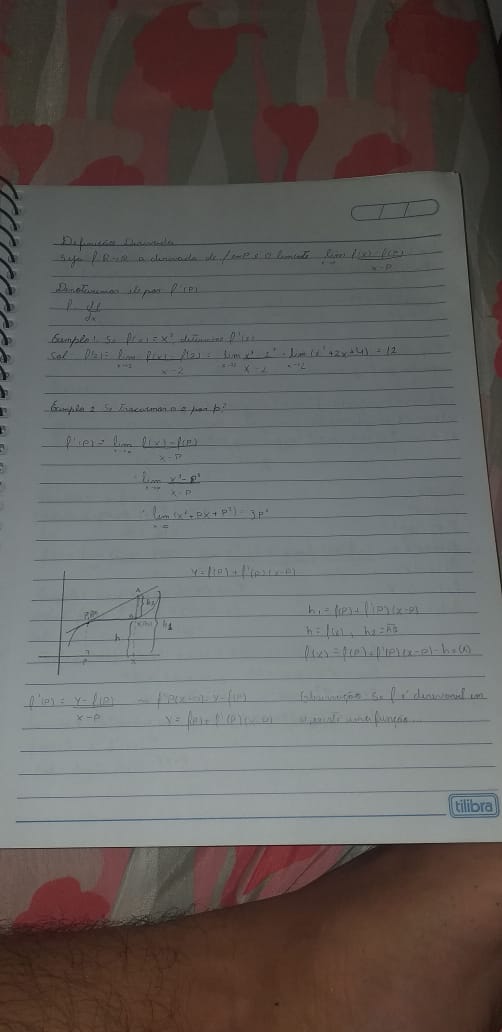 Definição Derivada
Seja f R→R a derivada de f em P é o limite lim f(x) - f(P)
x-P
Denotaremos por f'(P)
df
dx
Exemplo 1 Se f(x) = x³ determine f'(2)
Sol f'(2) = lim f(x) - f(2) = lim x³ - 2³ = lim (x²+2x+4) = 12
x→2 x-2 x→2 x-2 x→2
Exemplo 2 Se trocarmos o 2 por p?
f'(P) = lim f(x) - f(P)
x-P
lim x³ - P³
x-P
lim (x²+Px+P²) = 3P²
Y = f(P) + f'(P)(x-P)
A
h2
h h1
P x
h1 = f(P) + f'(P)(x-P)
h = f(x), h2 = AB
f(x) = f(P) + f'(P)(x-P) - h2(x)
f'(P) = Y - f(P)
x-P
Y = f(P) + f'(P)(x-P)
Observação: Se f é derivavel em
existe uma função...
tilibra